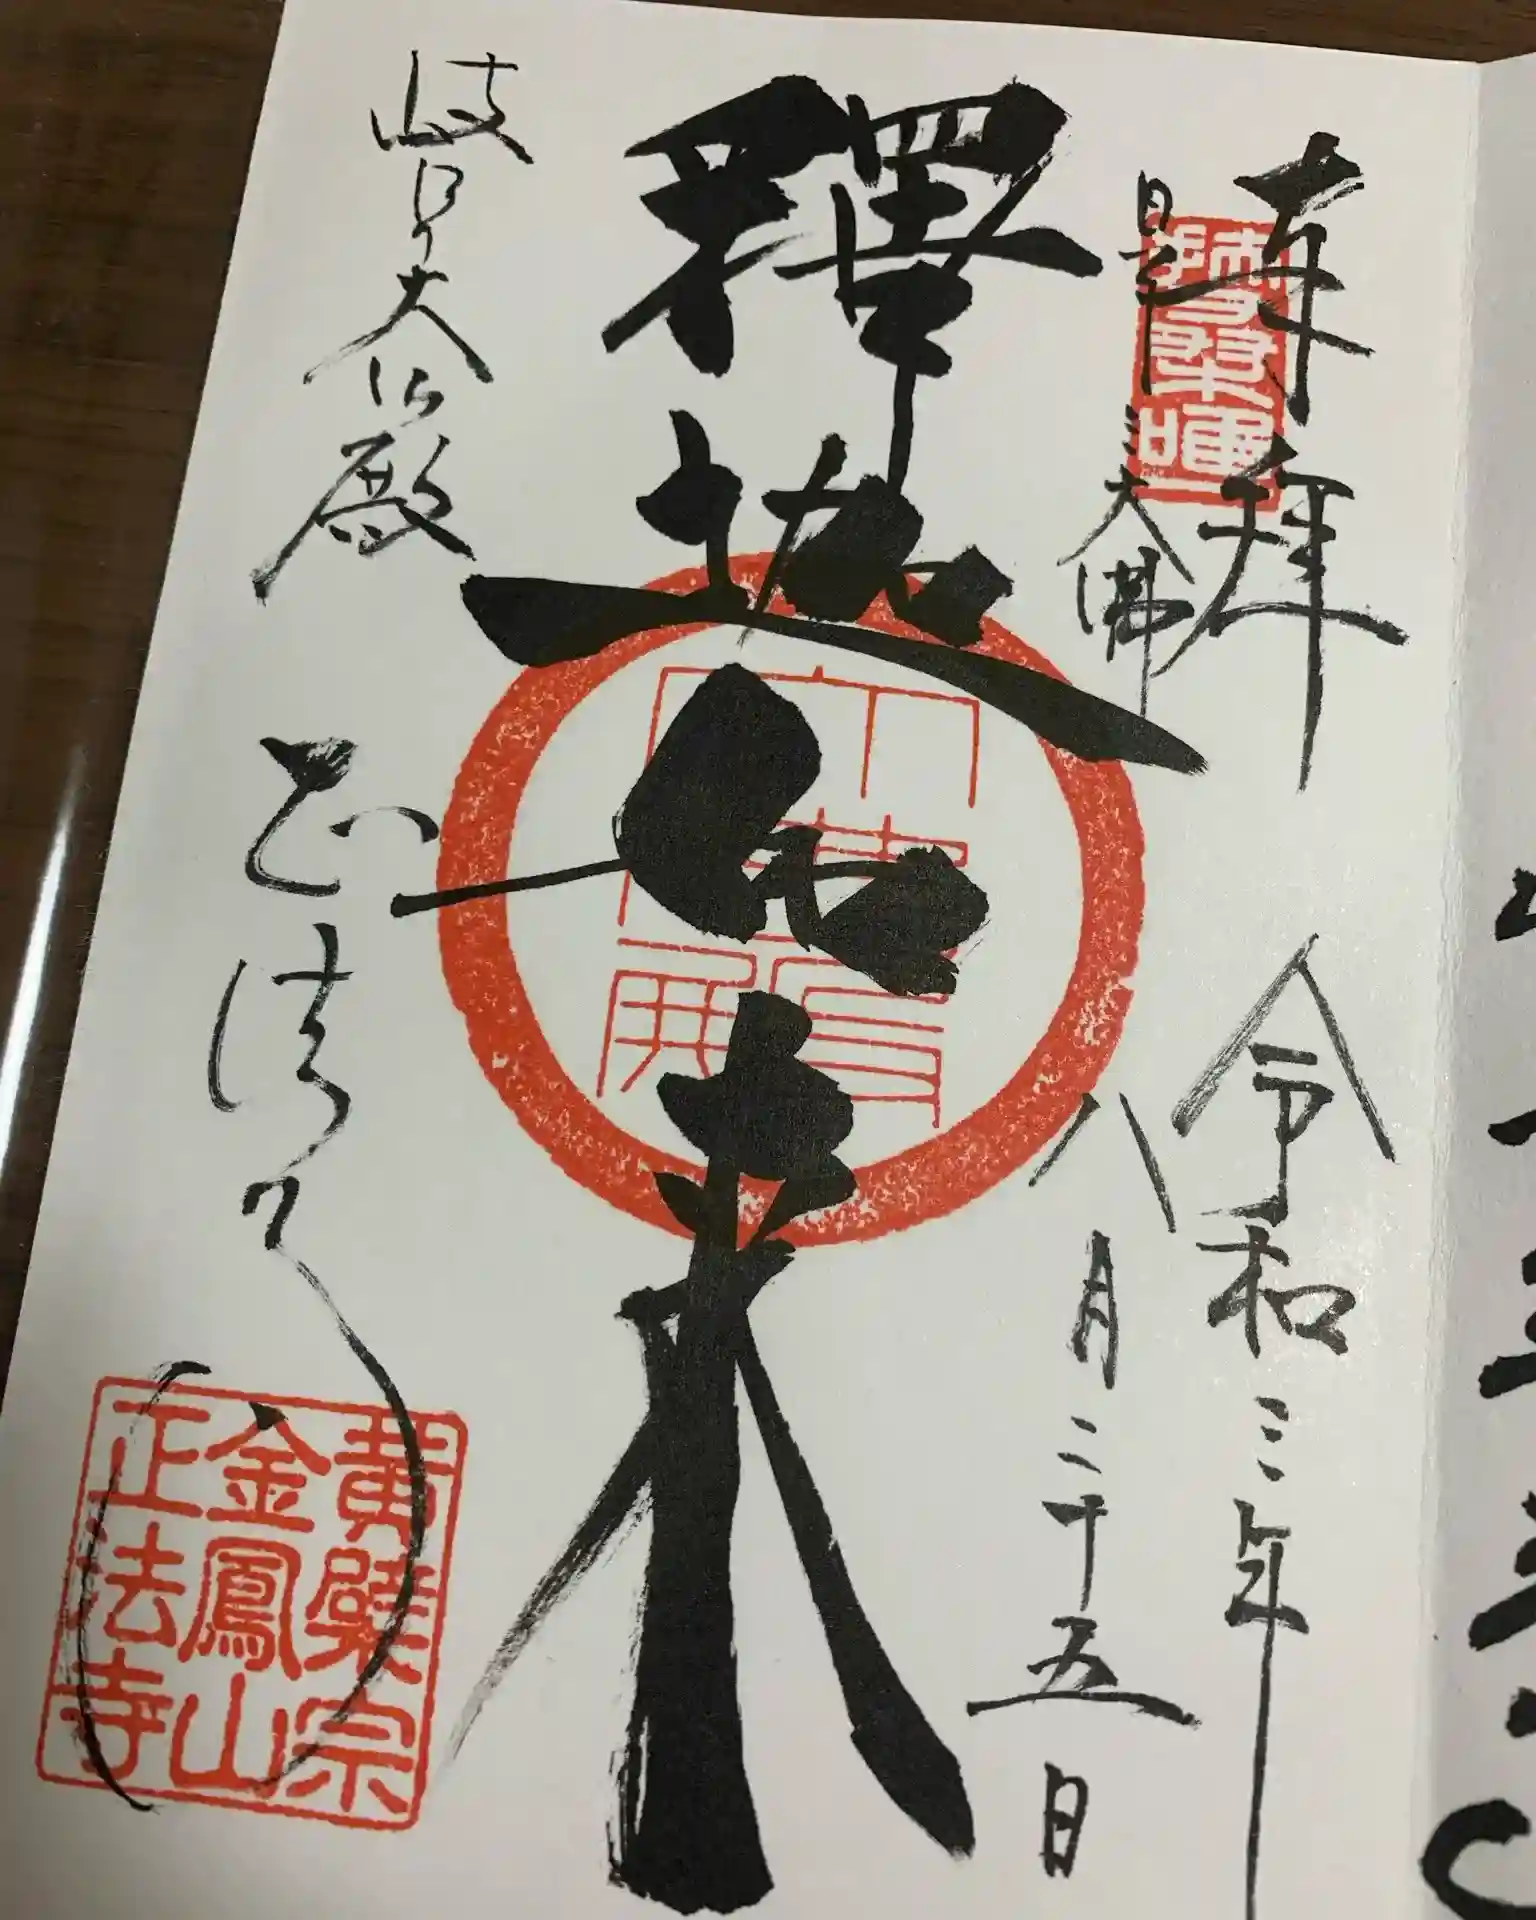 奉拝
令和三年
日本三大佛
八月二十五日
釋迦如来
岐阜大仏殿
正法寺
黄檗宗
金鳳山
正法寺